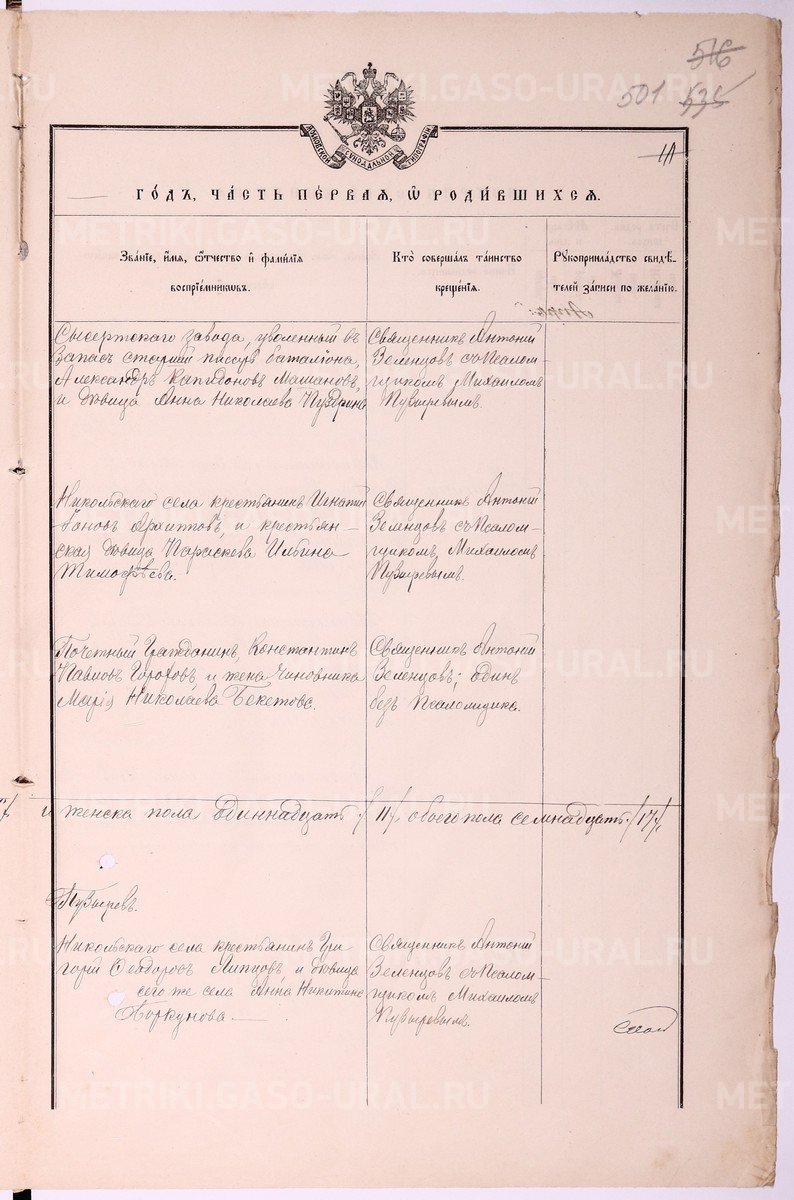 516
501 535
ДУХОВСКОЙ СѴНОДАЛЬНОЙ ТИПОГРАФІИ
ГОДЪ, ЧАСТЬ ПЕРВАЯ, Ѡ РОДИВШИХСЯ.
Званіе, имя, ѻтчество и фамилія
воспріемниковъ.
Кто совершалъ таинство
крещенія.
Рукоприкладство свидѣ-
телей записи по желанію.
Сысертскаго завода, уволенный въ
запасъ старшій писарь баталіона,
Александръ Капидоновъ Машановъ,
и дѣвица Анна Николаева Пузырина
Священникъ Антоній
Зеленцовъ съ Псалом-
щикомъ Михаиломъ
Пузыревымъ.
Никольскаго села крестьянинъ Игнатій
Іоновъ Архиповъ, и крестьян-
ская дѣвица Параскева Ильина
Тимофѣева.
Священникъ Антоній
Зеленцовъ съ Псалом-
щикомъ Михаиломъ
Пузыревымъ.
Почетный Гражданинъ Константинъ
Павловъ Гороховъ и жена Чиновника
Марія Николаева Бекетова.
Священникъ Антоній
Зеленцовъ; одинъ
безъ Псаломщика.
и женска пола одиннадцать /11/, обоего пола семнадцать. /17/,
Пузыревъ.
Никольскаго села крестьянинъ Гри-
горій Ѳеодоровъ Липцовъ, и дѣвица
сего же села Анна Никитина
Боркунова
Священникъ Антоній
Зеленцовъ съ Псалом-
щикомъ Михаиломъ
Пузыревымъ.
METRIKI.GASO-URAL.RU